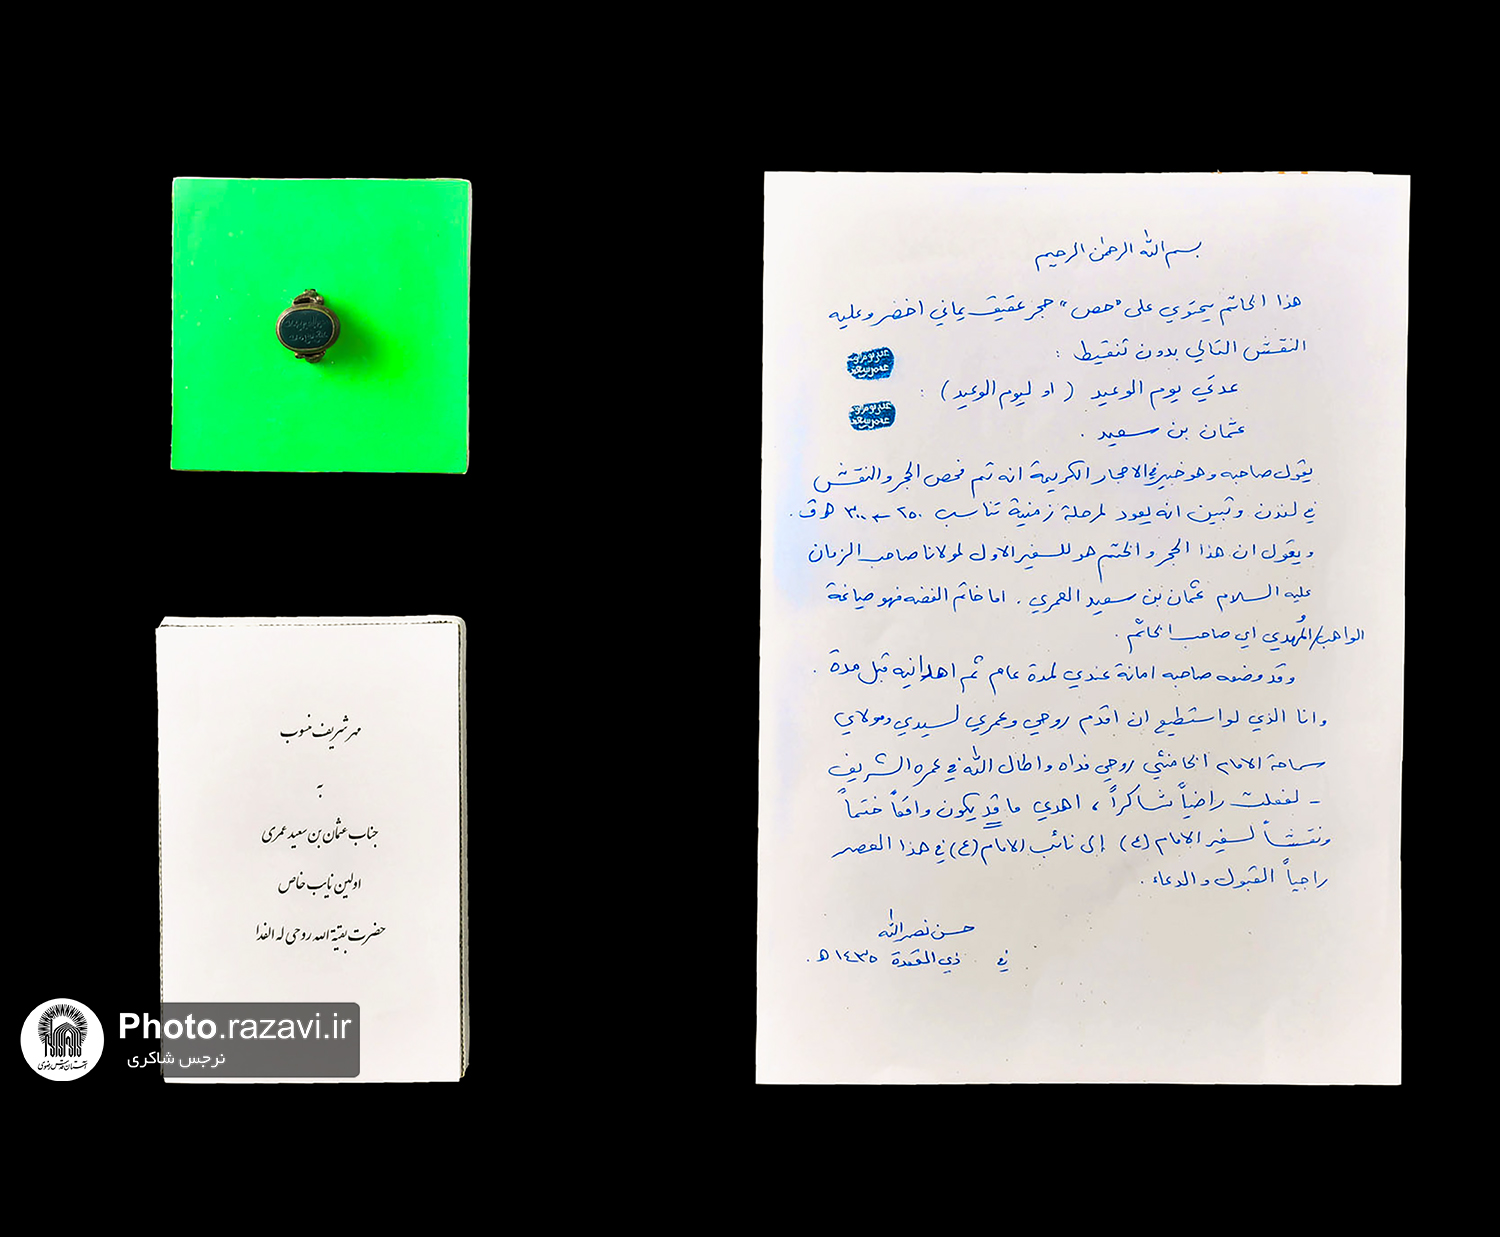 بسم الله الرحمن الرحيم
هذا الخاتم يحتوي على "حص" حجر عقيق يماني اخضر وعليه
النقش التالي بدون تنقيط :
عدتي يوم الوعيد ( او ليوم الوعيد ) :
عثمان بن سعيد .
يقول صاحبه وهو خبير في الاحجار الكريمة انه تم فحص الحجر والنقش
في لندن وتبين انه يعود لمرحلة زمنية تناسب ٢٥٠ - ٣٠٠ هـ ق .
ويقول ان هذا الحجر والختم هو للسفير الاول لمولانا صاحب الزمان
عليه السلام عثمان بن سعيد العمري . اما خاتم الفضه فهو صياغة
الواهب/المُهدي اي صاحب الخاتم .
وقد وضعه صاحبه امانة عندي لمدة عام ثم اهدانيه قبل مدة .
وانا الذي لو استطيع ان اقدم روحي وعمري لسيدي ومولاي
سماحة الامام الخامنئي روحي فداه واطال الله في عمره الشريف
- لفعلت راضياً شاكراً ، اهدي ما قد يكون واقعاً ختماً
ونقشاً لسفير الامام (ع) إلى نائب الامام (ع) في هذا العصر
راجياً القبول والدعاء .
حسن نصر الله
في ذي القعدة ١٤٣٥ هـ .
مهر شریف منسوب
به
جناب عثمان بن سعید عمری
اولین نایب خاص
حضرت بقیة الله روحی له الفدا
Photo.razavi.ir
نرجس شاکری
آستان قدس رضوی